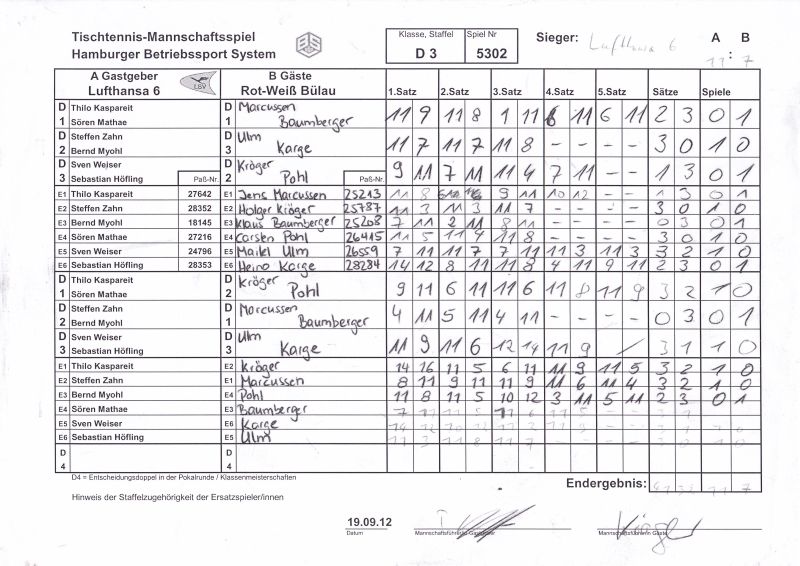 Tischtennis-Mannschaftsspiel
Hamburger Betriebssport System
Klasse, Staffel Spiel Nr
D 3 5302
Sieger: Lufthansa 6 A B
11 : 7
A Gastgeber B Gäste
Lufthansa 6 LSV Rot-Weiß Bülau 1.Satz 2.Satz 3.Satz 4.Satz 5.Satz Sätze Spiele
D 1 Thilo Kaspareit Sören Mathae D 1 Marcussen Baumberger 11 9 11 8 1 11 6 11 6 11 2 3 0 1
D 2 Steffen Zahn Bernd Myohl D 3 Ulm Karge 11 7 11 7 11 8 - - - - 3 0 1 0
D 3 Sven Weiser Sebastian Höfling D 2 Kröger Pohl 9 11 7 11 11 4 7 11 - - 1 3 0 1
Paß-Nr. Paß-Nr.
E1 Thilo Kaspareit 27642 E1 Jens Marcussen 25213 11 8 9 11 10 12 - - 1 3 0 1
E2 Steffen Zahn 28352 E2 Holger Kröger 25787 11 3 11 3 11 7 - - - - 3 0 1 0
E3 Bernd Myohl 18145 E3 Klaus Baumberger 25208 7 11 2 11 8 11 - - - - 0 3 0 1
E4 Sören Mathae 27216 E4 Carsten Pohl 26415 11 5 11 4 11 8 - - - - 3 0 1 0
E5 Sven Weiser 24796 E5 Maikel Ulm 26559 7 11 11 7 7 11 11 3 11 3 3 2 1 0
E6 Sebastian Höfling 28353 E6 Heino Karge 28284 14 12 8 11 11 8 4 11 9 11 2 3 0 1
D 1 Thilo Kaspareit Sören Mathae D 2 Kröger Pohl 9 11 6 11 11 6 11 8 11 9 3 2 1 0
D 2 Steffen Zahn Bernd Myohl D 1 Marcussen Baumberger 4 11 5 11 4 11 - - - - 0 3 0 1
D 3 Sven Weiser Sebastian Höfling D 3 Ulm Karge 11 9 11 6 12 14 11 9 / 3 1 1 0
E1 Thilo Kaspareit E2 Kröger 14 16 11 5 6 11 11 9 11 5 3 2 1 0
E2 Steffen Zahn E1 Marcussen 8 11 9 11 11 9 11 6 11 4 3 2 1 0
E3 Bernd Myohl E4 Pohl 11 8 11 5 10 12 3 11 5 11 2 3 0 1
E4 Sören Mathae E3 Baumberger
E5 Sven Weiser E6 Karge
E6 Sebastian Höfling E5 Ulm 11 3 11 8 11 7
D 4 D 4
D4 = Entscheidungsdoppel in der Pokalrunde / Klassenmeisterschaften
Endergebnis: 11 7
Hinweis der Staffelzugehörigkeit der Ersatzspieler/innen
19.09.12
Datum